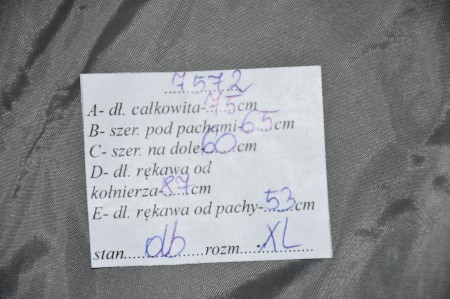 7572
A- dł. całkowita-75cm
B- szer. pod pachami-65cm
C- szer. na dole-60cm
D- dł. rękawa od
kołnierza-87cm
E- dł. rękawa od pachy-53cm
stan....db.........rozm....XL........